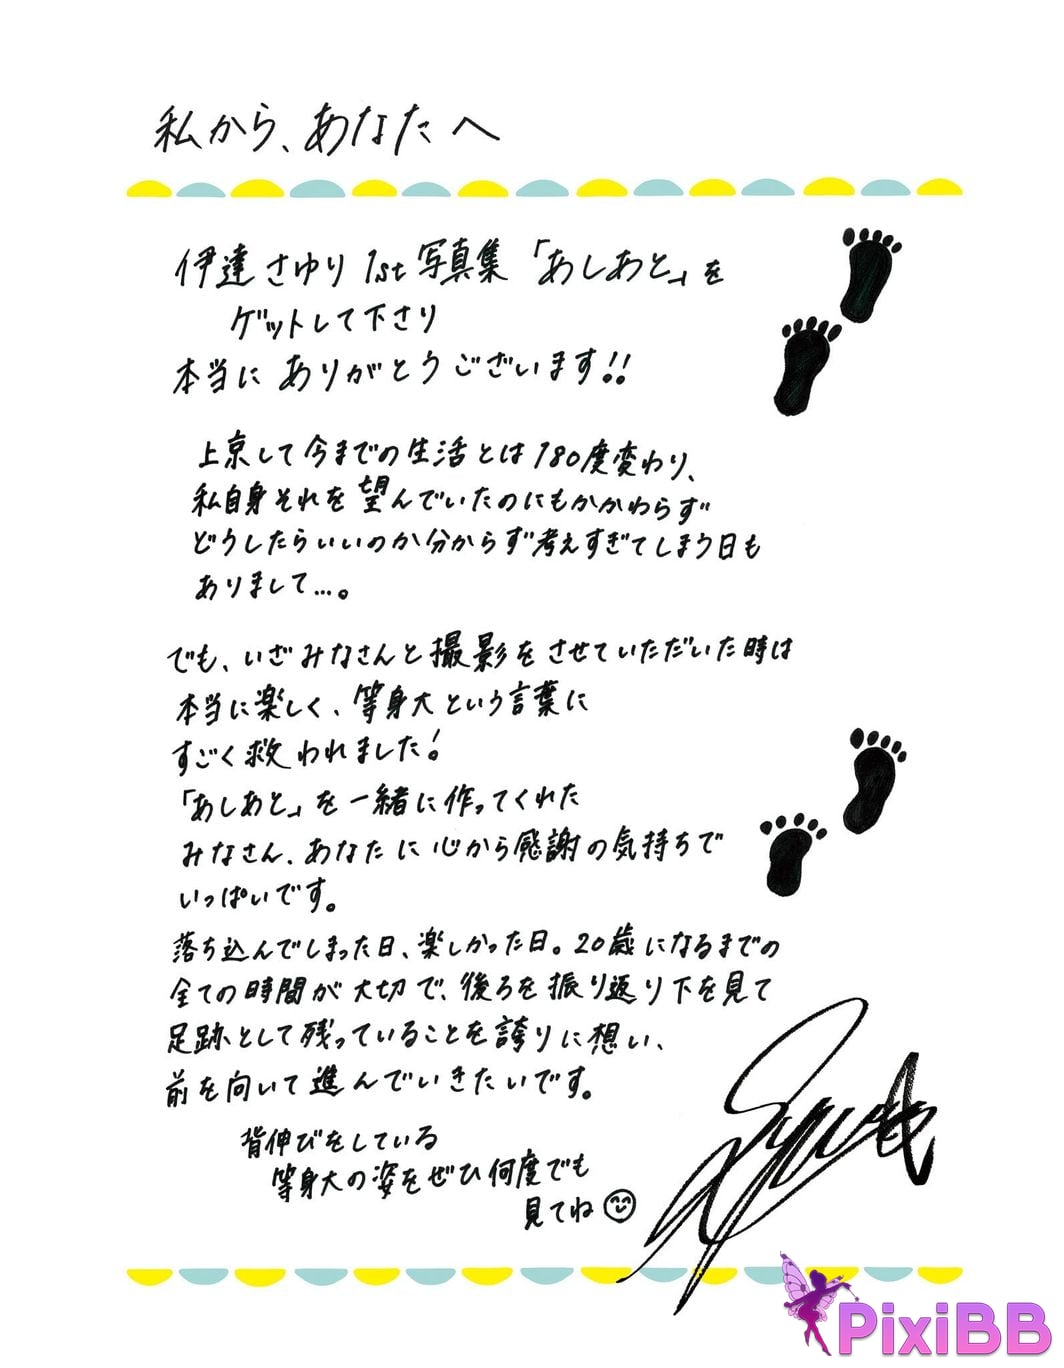 私から、あなたへ
伊達さゆり 1st写真集「あしあと」を
ゲットして下さり
本当に ありがとうございます!!
上京して今までの生活とは180度変わり、
私自身それを望んでいたのにもかかわらず
どうしたらいいのか分からず考えすぎてしまう日も
ありまして…。
でも、いざみなさんと撮影をさせていただいた時は
本当に楽しく、等身大という言葉に
すごく救われました!
「あしあと」を一緒に作ってくれた
みなさん、あなたに心から感謝の気持ちで
いっぱいです。
落ち込んでしまった日、楽しかった日。20歳になるまでの
全ての時間が大切で、後ろを振り返り下を見て
足跡として残っていることを誇りに想い、
前を向いて進んでいきたいです。
背伸びをしている
等身大の姿をぜひ何度でも
見てね
PixiBB